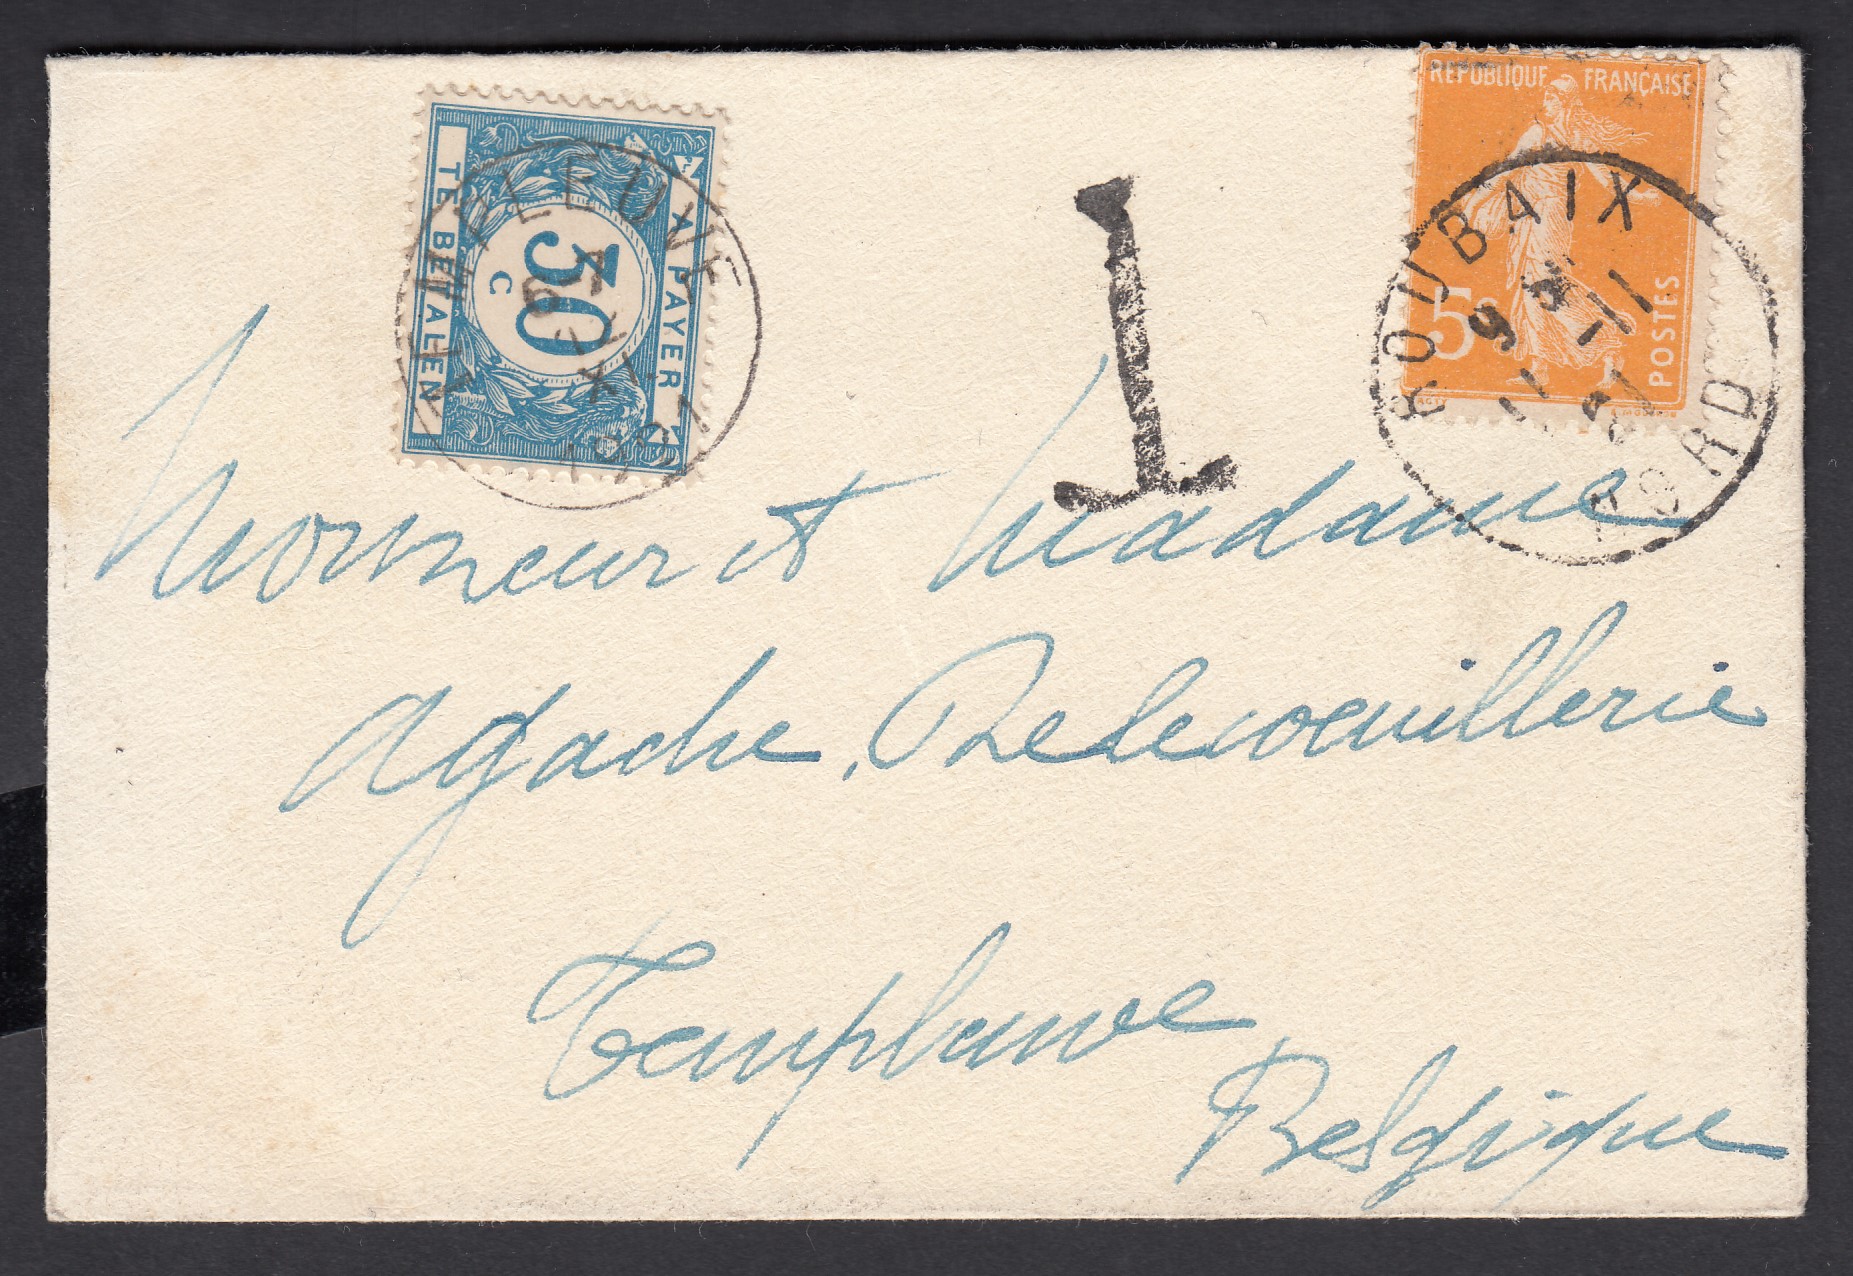 REPUBLIQUE FRANÇAISE
5c
POSTES
ROUBAIX
NORD
A PAYER
TE BETALEN
30
C
TEMPLEUVE
XI
1927
T
Monsieur et Madame
Agache, Delecoeuillerie
Templeuve
Belgique